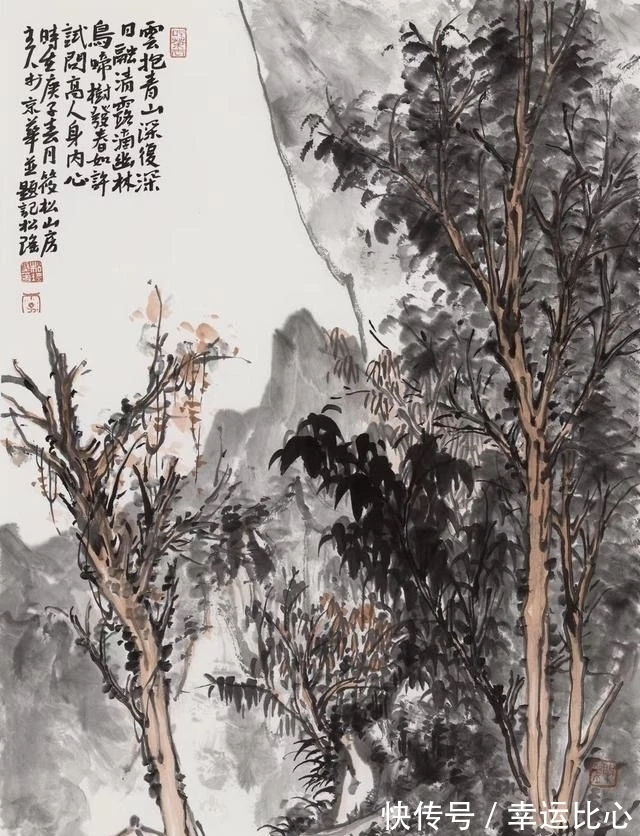 雲抱青山深復深
日融清露滴幽林
鳥啼樹發春如許
試問高人身内心
時在庚子春月筱松山房
主人於京華並題記松瑤
快传号 / 幸运比心